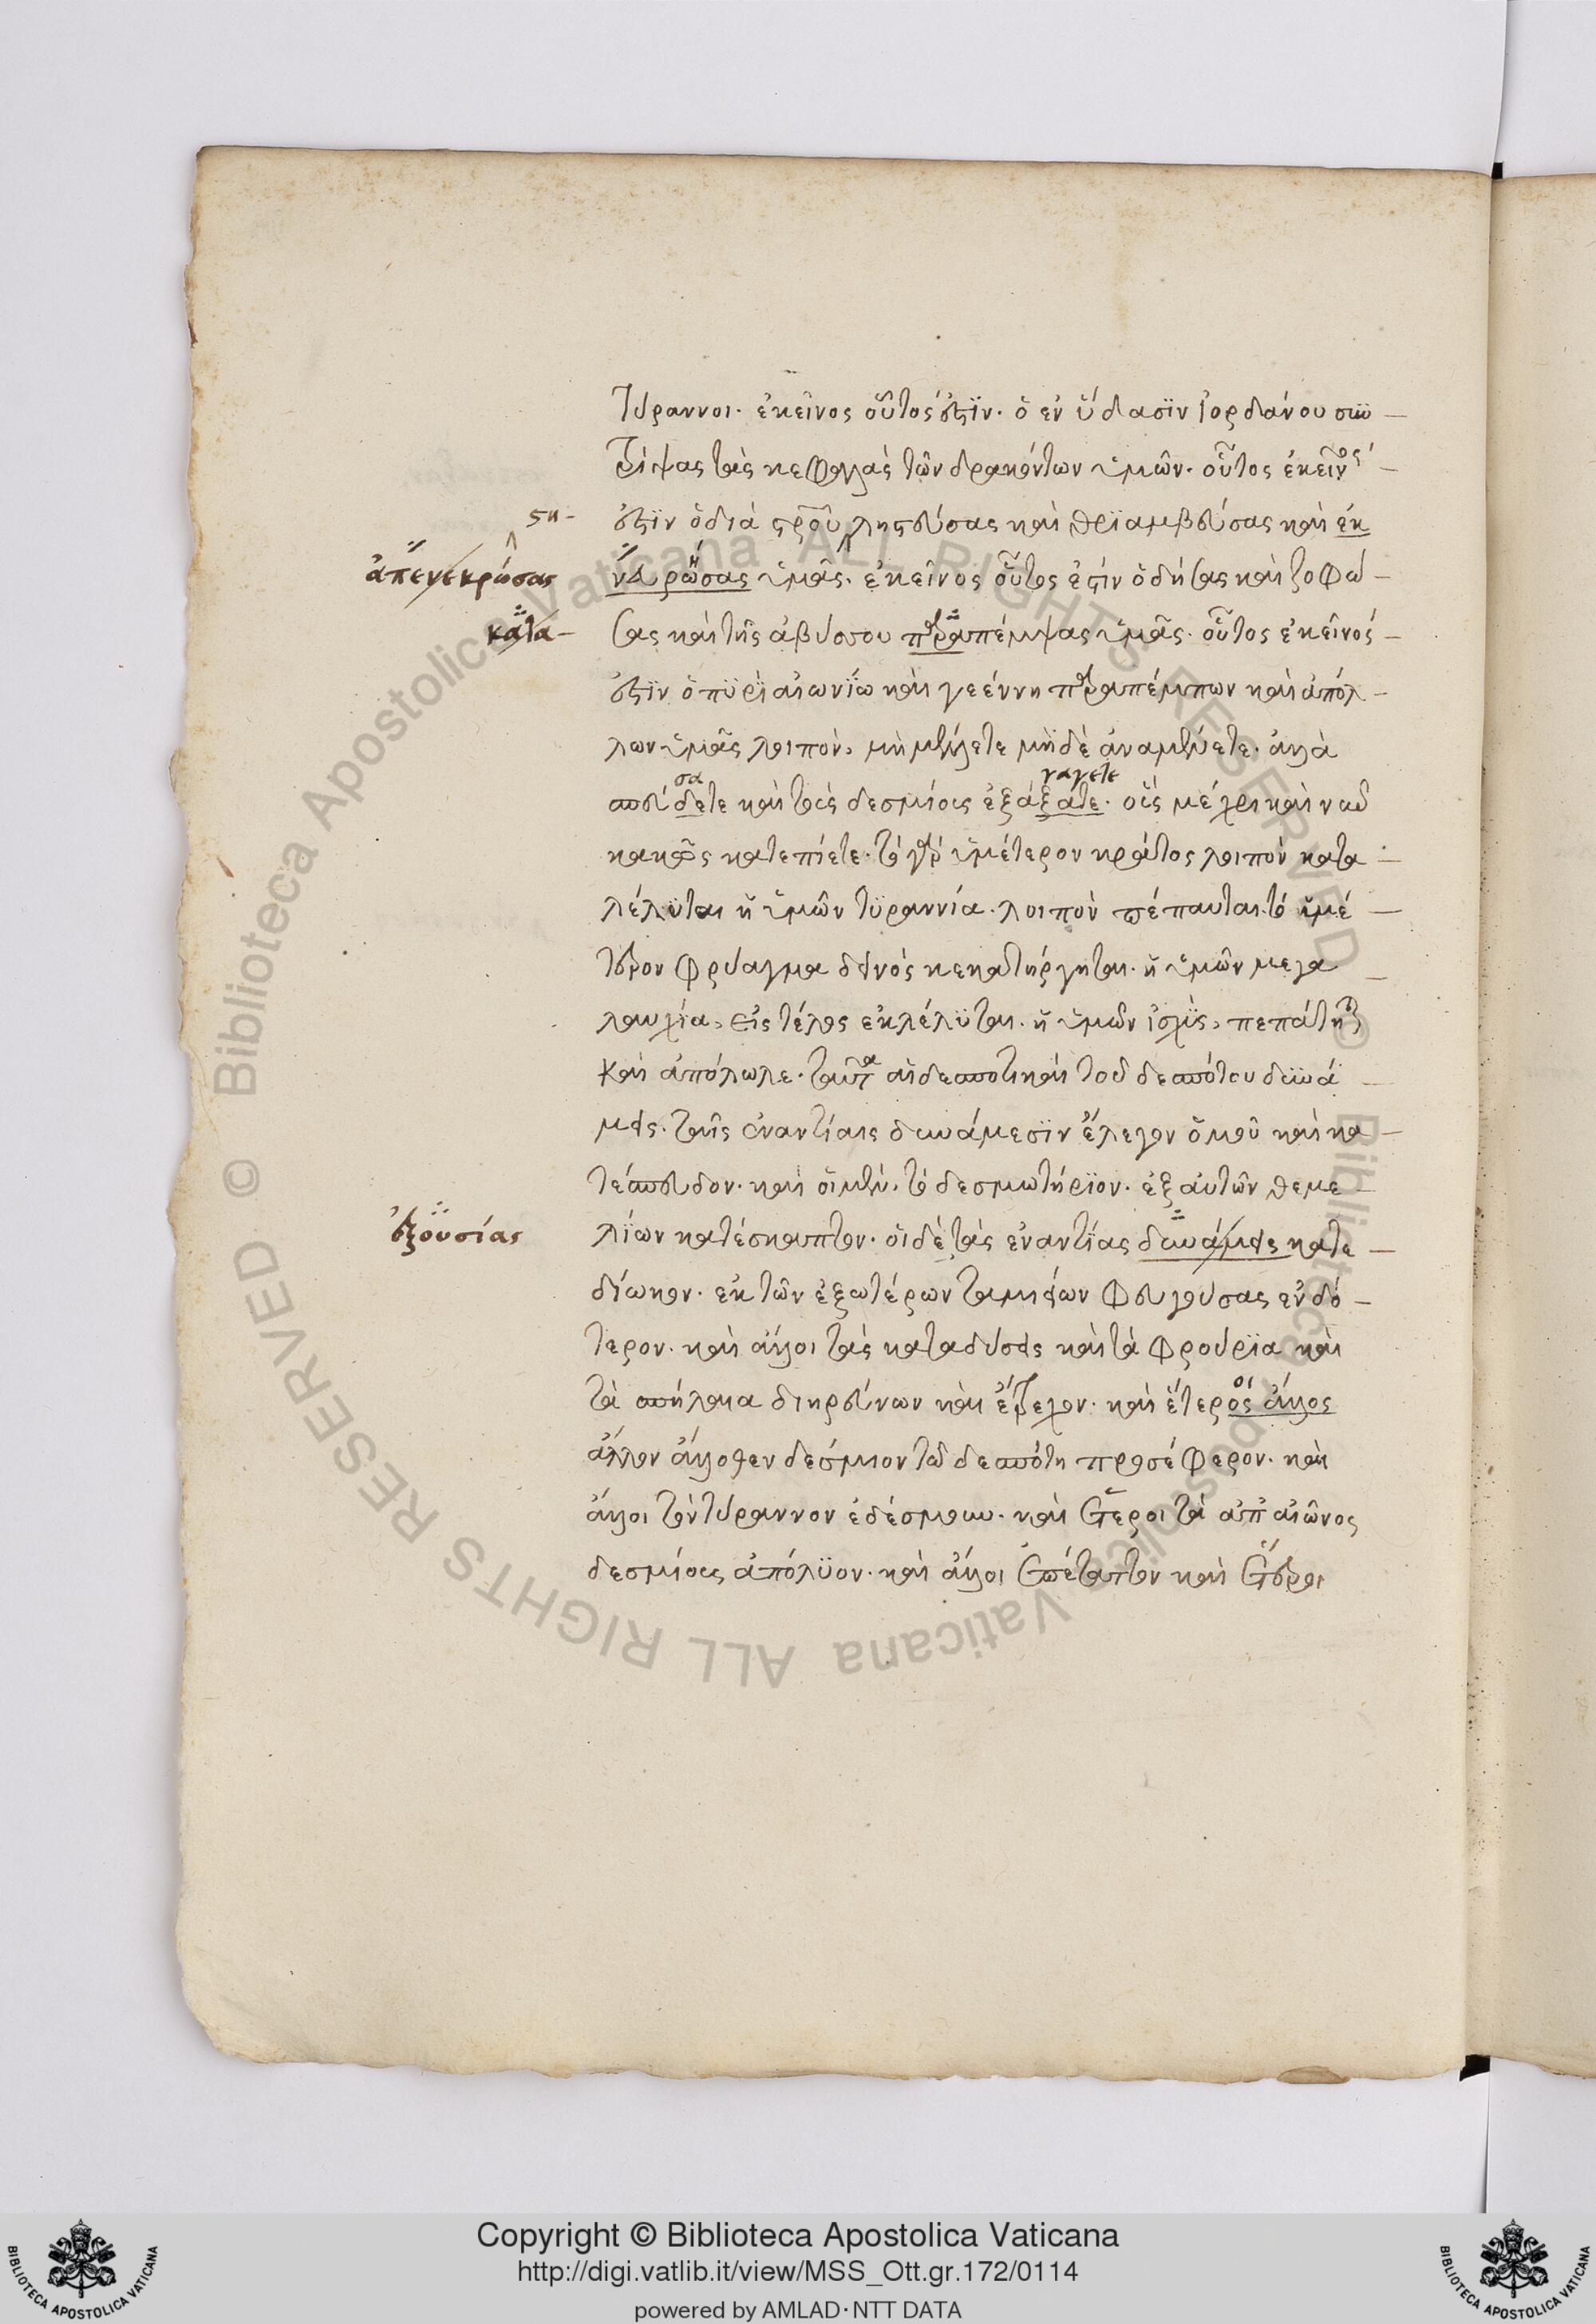 τύραννοι. ἐκεῖνος οὗτός ἐστϊν. ὁ εν ὕδασϊν ἰορδάνου συν
τρίψας τὰς κεφαλὰς τῶν δρακόντων ὑμῶν. οὗτος ἐκεῖνός
στη-
ἐστϊν ὁ διὰ στ̅ρ̅οῦ λῃστεύσας καὶ θρϊαμβεύσας καὶ ἐκ
ἀπενεκρώσας
νευρώσας ὑμᾶς. ἐκεῖνος οὗτος ἐστίν ὁ δήσας καὶ ζοφώ
κατα-
σας καὶ τῆς ἀβύσσου παραπέμψας ὑμᾶς. οὗτος ἐκεῖνός
ἐστϊν ὁ πϋρὶ αἰωνΐω καὶ γεέννη παραπέμπων καὶ ἀπόλ
λων ὑμᾶς λοιπὸν, μὴ μέλλετε μὴδὲ ἀναμένετε. ἀλλὰ
σα γαγετε
σπεύδετε καὶ τοὺς δεσμίους ἐξάξατε. οὓς μέχρι καὶ νῦν
κακῶς κατεπίετε. τὸ γὰρ ὑμέτερον κράτος λοιπὸν κατα
λέλϋται ἡ ὑμῶν τϋραννία. λοιπὸν πέπαυται τὸ ὑμέ
τερον φρύαγμα δεινός κεκατήργηται. ἡ ὑμῶν μεγα
λαυχία, εἰς τέλος ἐκλέλϋται. ἡ ὑμῶν ἰσχὺς, πεπάτηται
καὶ ἀπόλωλε. ταῦτα αἱ δεσποτικαὶ τοῦ δεσπότου δϋνά
μεις. ταῖς ἐναντίαις δυνάμεσϊν ἔλεγον ὁμοῦ καὶ κα
τέσπευδον. καὶ οἱ μὲν, τὸ δεσμωτήρϊον. ἐξ αὐτῶν θεμε
ἐξουσίας
λΐων κατέσκαπτον. οἱ δὲ τὰς ἐναντίας δυνάμεις κατε
δίωκον. ἐκ τῶν ἐξωτέρων ταμείων φευγούσας ἐνδό
τερον. καὶ ἄλλοι τὰς καταδύσεις καὶ τὰ φρούρϊα καὶ
τὰ σπήλαια διηρεύνων καὶ ἔτρεχον. καὶ ἕτερος ἄλλος
ἄλλον ἄλλοθεν δεσμιον τῶ δεσπότη προσέφερον. καὶ
ἄλλοι τὸν τύραννον ἐδέσμουν. καὶ ἕτεροι τὰ ἀπ αἰῶνος
δεσμίους ἀπόλϋον. καὶ ἄλλοι ἐπέταττον καὶ ἕτεροι
Copyright © Biblioteca Apostolica Vaticana
http://digi.vatlib.it/view/MSS_Ott.gr.172/0114
powered by AMLAD·NTT DATA
BIBLIOTECA APOSTOLICA VATICANA
BIBLIOTECA APOSTOLICA VATICANA
© Biblioteca Apostolica Vaticana ALL RIGHTS RESERVED
© Biblioteca Apostolica Vaticana ALL RIGHTS RESERVED